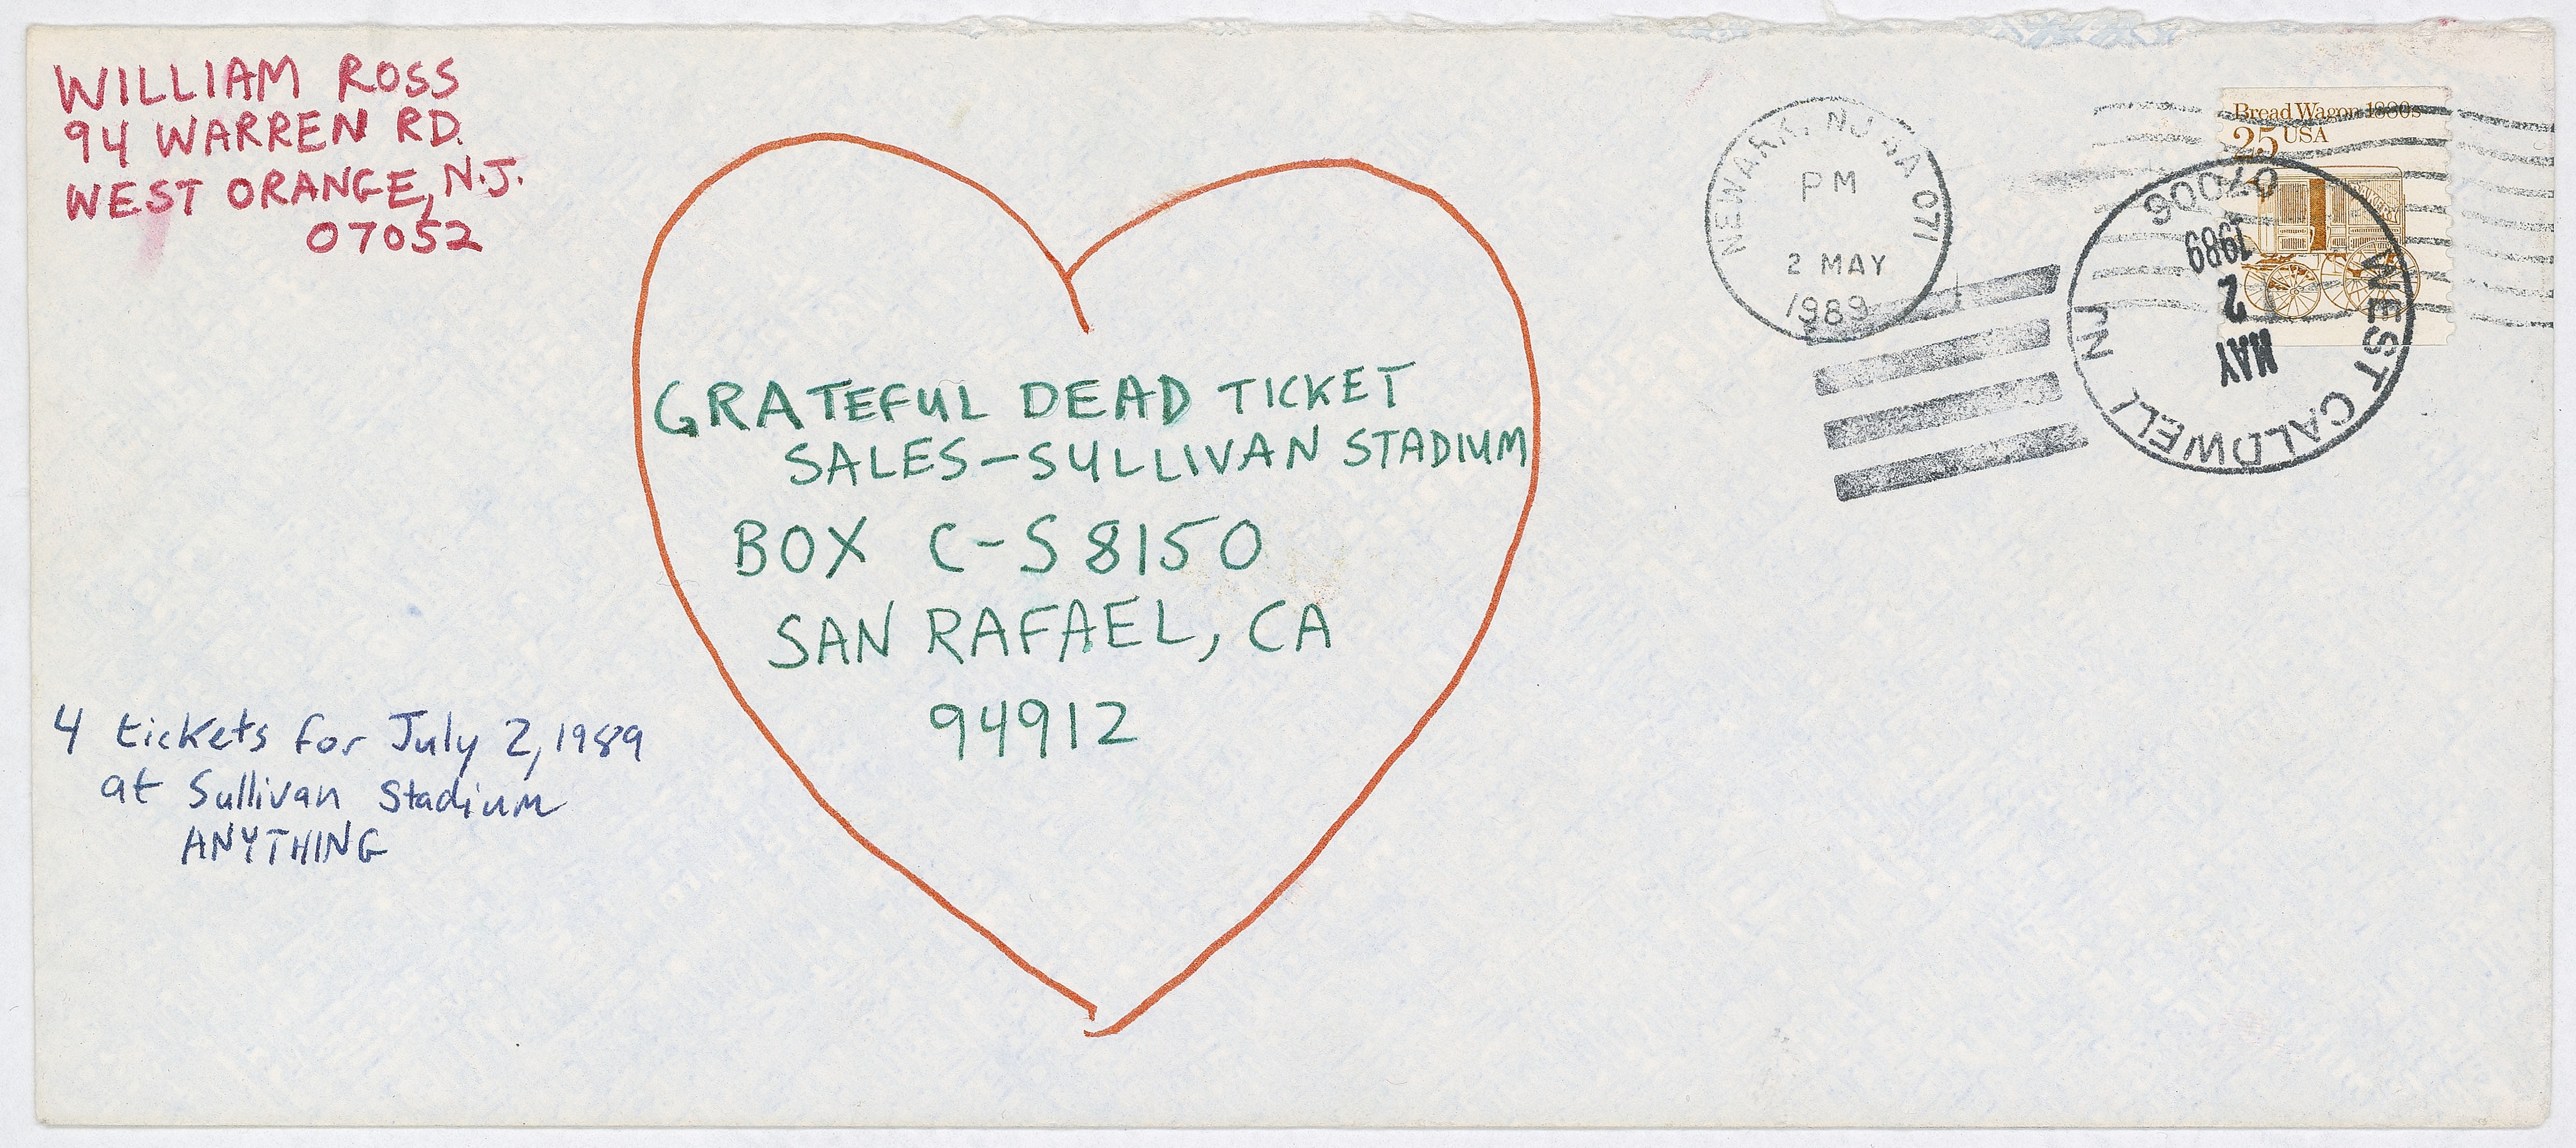 WILLIAM ROSS
94 WARREN RD.
WEST ORANGE, N.J.
07052
NEWARK, NJ 071
PM
2 MAY
1989
Bread Wagon 1880s
25 USA
WEST CALDWELL NJ
07006
MAY
2
1989
GRATEFUL DEAD TICKET
SALES-SULLIVAN STADIUM
BOX C-S 8150
SAN RAFAEL, CA
94912
4 tickets for July 2, 1989
at Sullivan Stadium
ANYTHING